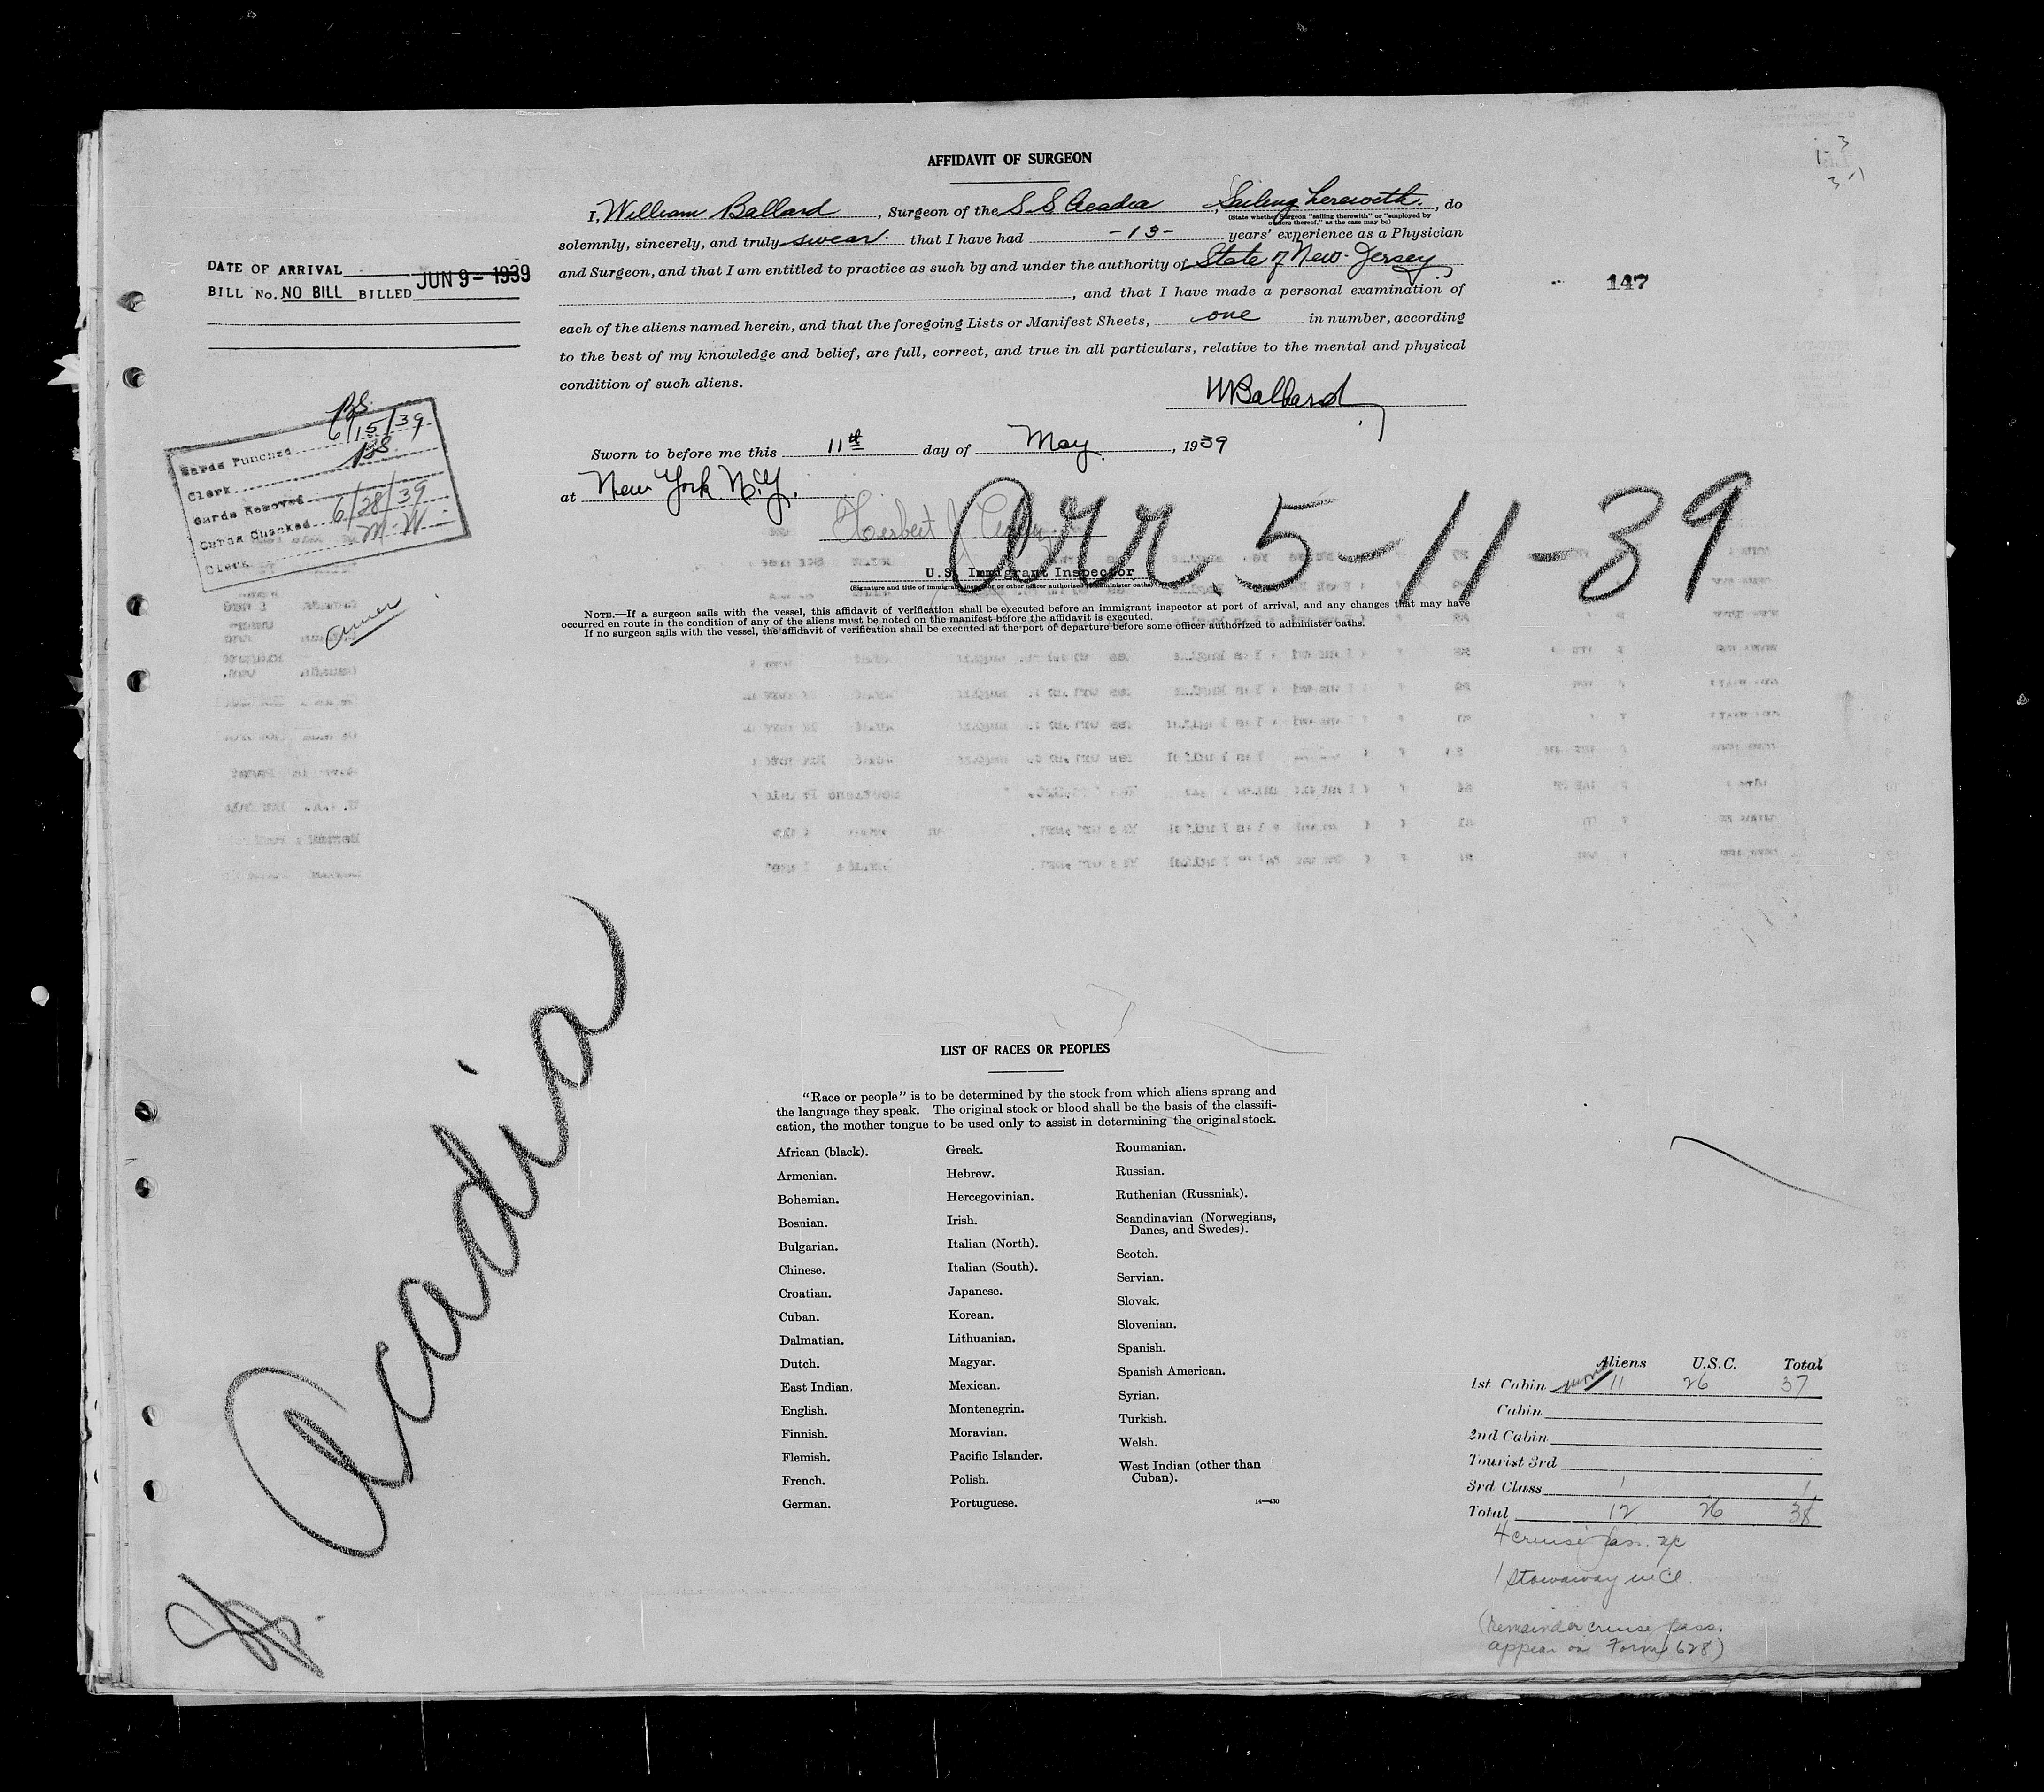 AFFIDAVIT OF SURGEON
I, William Ballard, Surgeon of the S S Acadia, Sailing therewith, do
(State whether Surgeon "sailing therewith" or "employed by
owners thereof," as the case may be)
solemnly, sincerely, and truly swear. that I have had -13- years' experience as a Physician
and Surgeon, and that I am entitled to practice as such by and under the authority of State of New Jersey,
, and that I have made a personal examination of
each of the aliens named herein, and that the foregoing Lists or Manifest Sheets, one in number, according
to the best of my knowledge and belief, are full, correct, and true in all particulars, relative to the mental and physical
condition of such aliens.
W Ballard
Sworn to before me this 11th day of May, 1939
at New York N.Y.
Herbert J.
U.S. Immigrant Inspector
(Signature and title of immigrant inspector or other officer authorized to administer oaths)
NOTE.—If a surgeon sails with the vessel, this affidavit of verification shall be executed before an immigrant inspector at port of arrival, and any changes that may have
occurred en route in the condition of any of the aliens must be noted on the manifest before the affidavit is executed.
If no surgeon sails with the vessel, the affidavit of verification shall be executed at the port of departure before some officer authorized to administer oaths.
DATE OF ARRIVAL
BILL No. NO BILL BILLED JUN 9 - 1939
147
BS
Cards Punched 6/15/39
Clerk BS
Cards Removed
Cards Checked 6/28/39
Clerk M-W
Arr 5-11-39
Acadia
LIST OF RACES OR PEOPLES
"Race or people" is to be determined by the stock from which aliens sprang and
the language they speak. The original stock or blood shall be the basis of the classifi-
cation, the mother tongue to be used only to assist in determining the original stock.
African (black).
Armenian.
Bohemian.
Bosnian.
Bulgarian.
Chinese.
Croatian.
Cuban.
Dalmatian.
Dutch.
East Indian.
English.
Finnish.
Flemish.
French.
German.
Greek.
Hebrew.
Hercegovinian.
Irish.
Italian (North).
Italian (South).
Japanese.
Korean.
Lithuanian.
Magyar.
Mexican.
Montenegrin.
Moravian.
Pacific Islander.
Polish.
Portuguese.
Roumanian.
Russian.
Ruthenian (Russniak).
Scandinavian (Norwegians,
Danes, and Swedes).
Scotch.
Servian.
Slovak.
Slovenian.
Spanish.
Spanish American.
Syrian.
Turkish.
Welsh.
West Indian (other than
Cuban).
14—430
Aliens U.S.C. Total
1st Cabin 11 26 37
Cabin
2nd Cabin
Tourist 3rd
3rd Class 1 1
Total 12 26 38
4 cruise pass.
1 Stowaway
(Remainder cruise pass.
appear on Form 628)